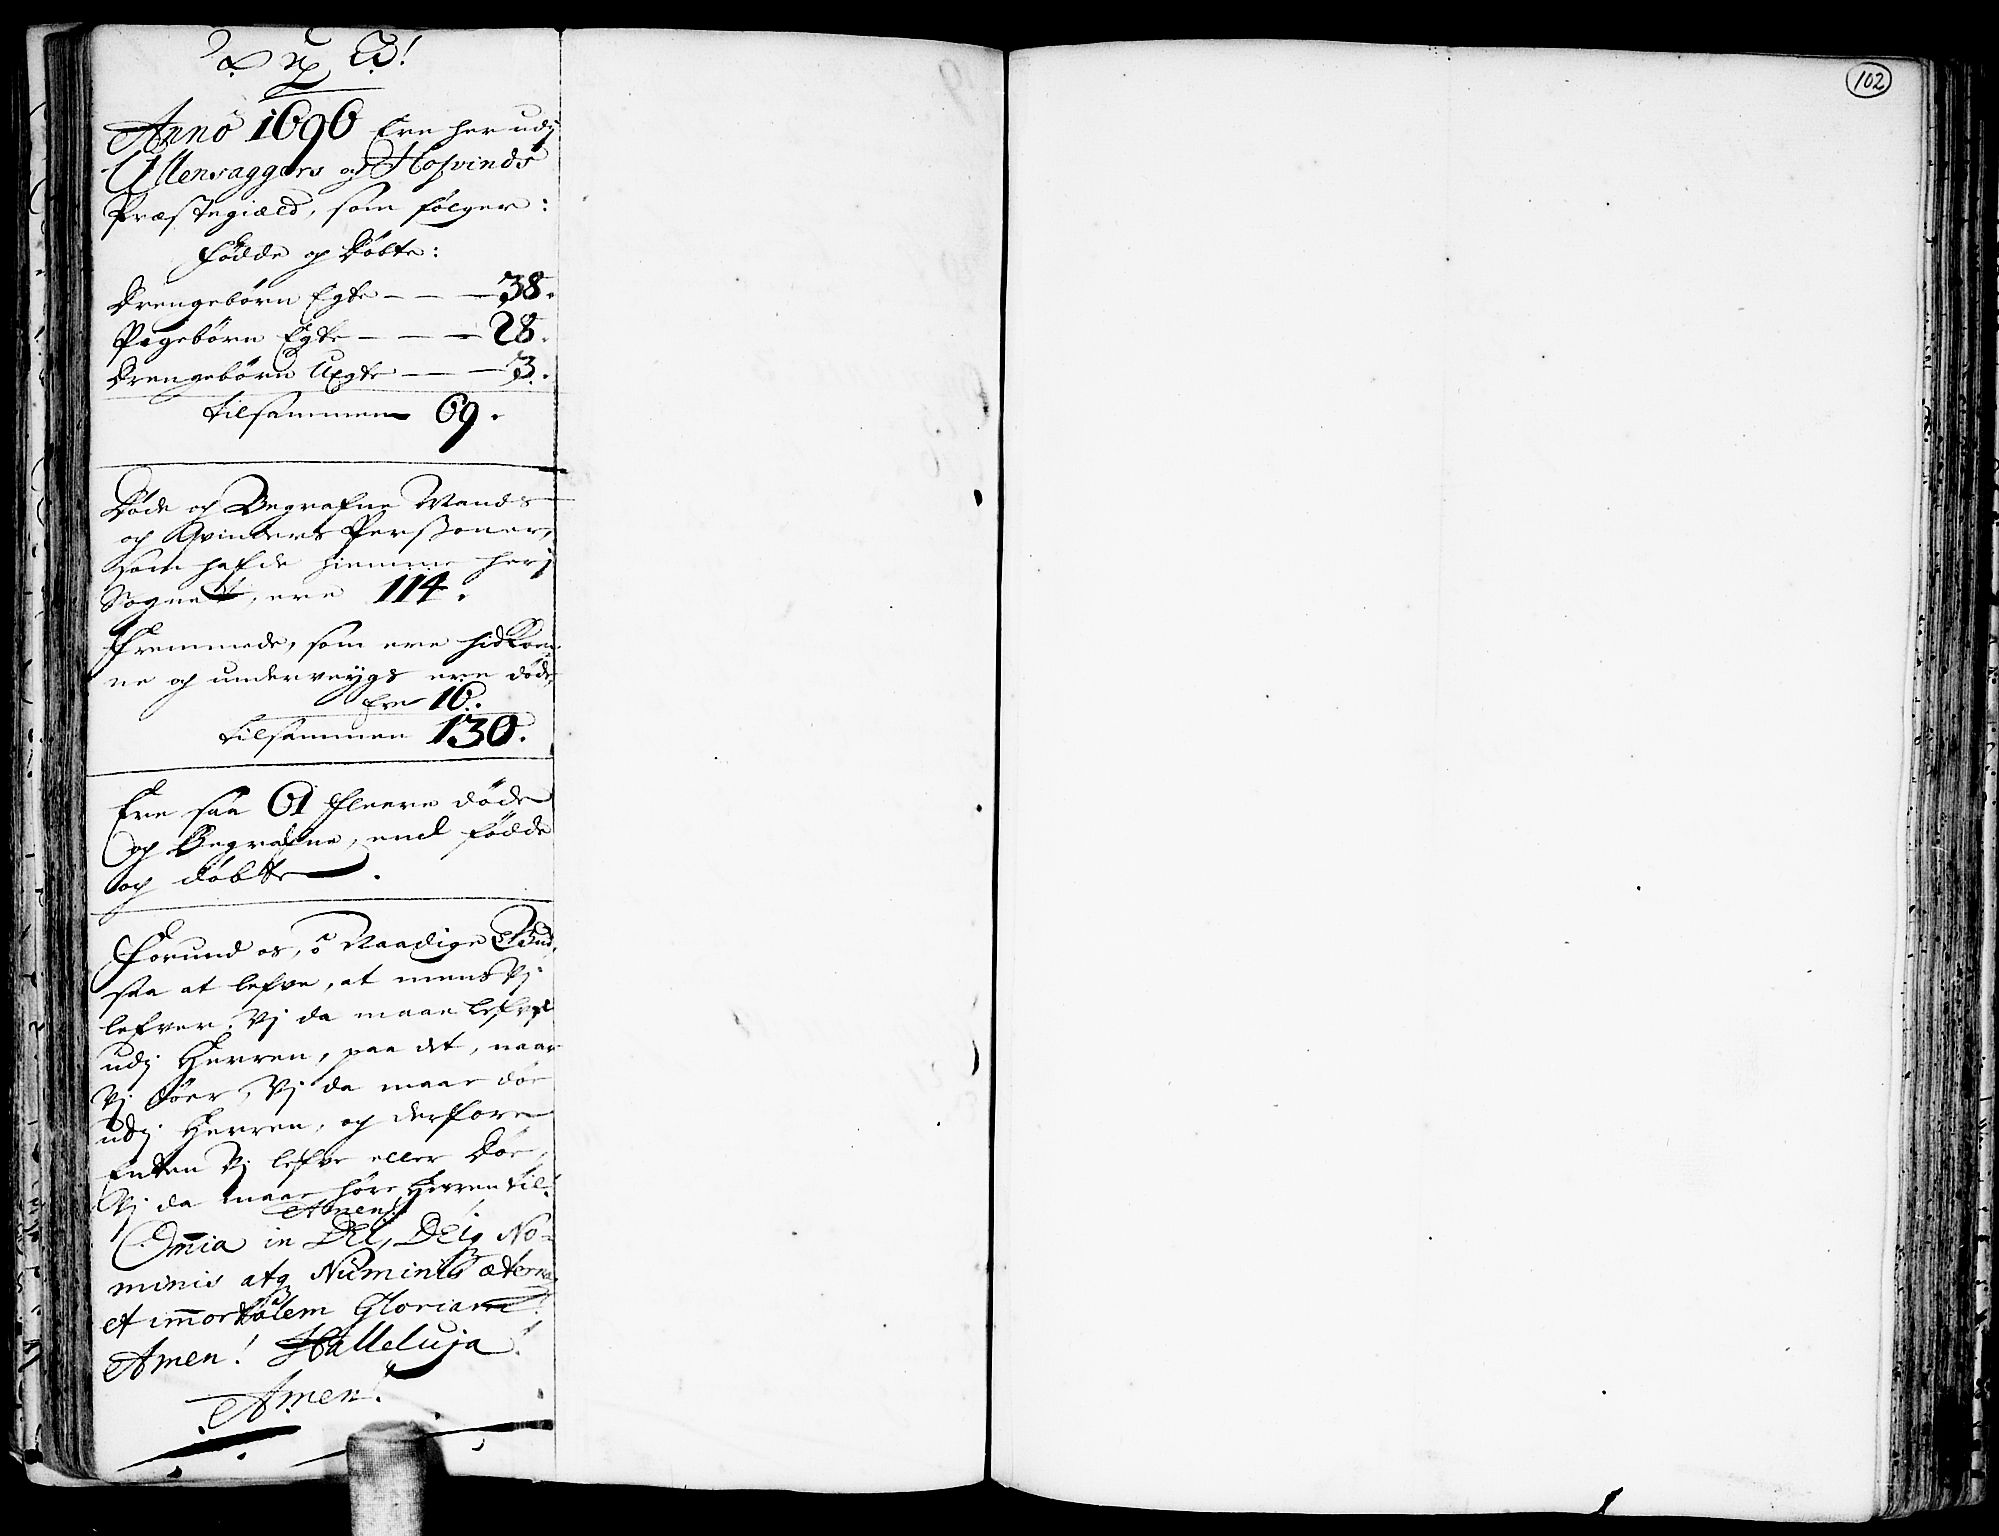 Anno 1696 Ere her udj
Ullensaggers og Hofvinds
Præstegiæld, som følger:
Fødde og Døbte:
Drengebørn Egte - - - 38.
Pigebørn Egte - - - 28.
Drengebørn Uegte - - - 3.
tilsammen 69.
Døde og Begrafne Mands
og Qvinders Persſoner,
som hafde hiemme her j
Sognet, ere 114.
Fremmede, som ere hidkom-
ne og underveygs ere døde,
Ere 16.
tilsammen 130.
Ere saa 61 fleere døde
og Begrafne, end fødde
og døbte.
Forund os, ô Naadige Gud,
saa at lefve, at mens Vj
lefver, Vj da maae lefve
udj Herren, paa det, naar
Vj døer, Vj da maae døe
udj Herren, og derfore
Enten Vj lefve eller Døe,
Vj da maae høre Herren til!
Amen!
Om̄ia in DEI, DEIq No-
minis atq Numinis æternam
et im̄ortalem Gloriam!
Amen! Halleluja!
Amen!
102